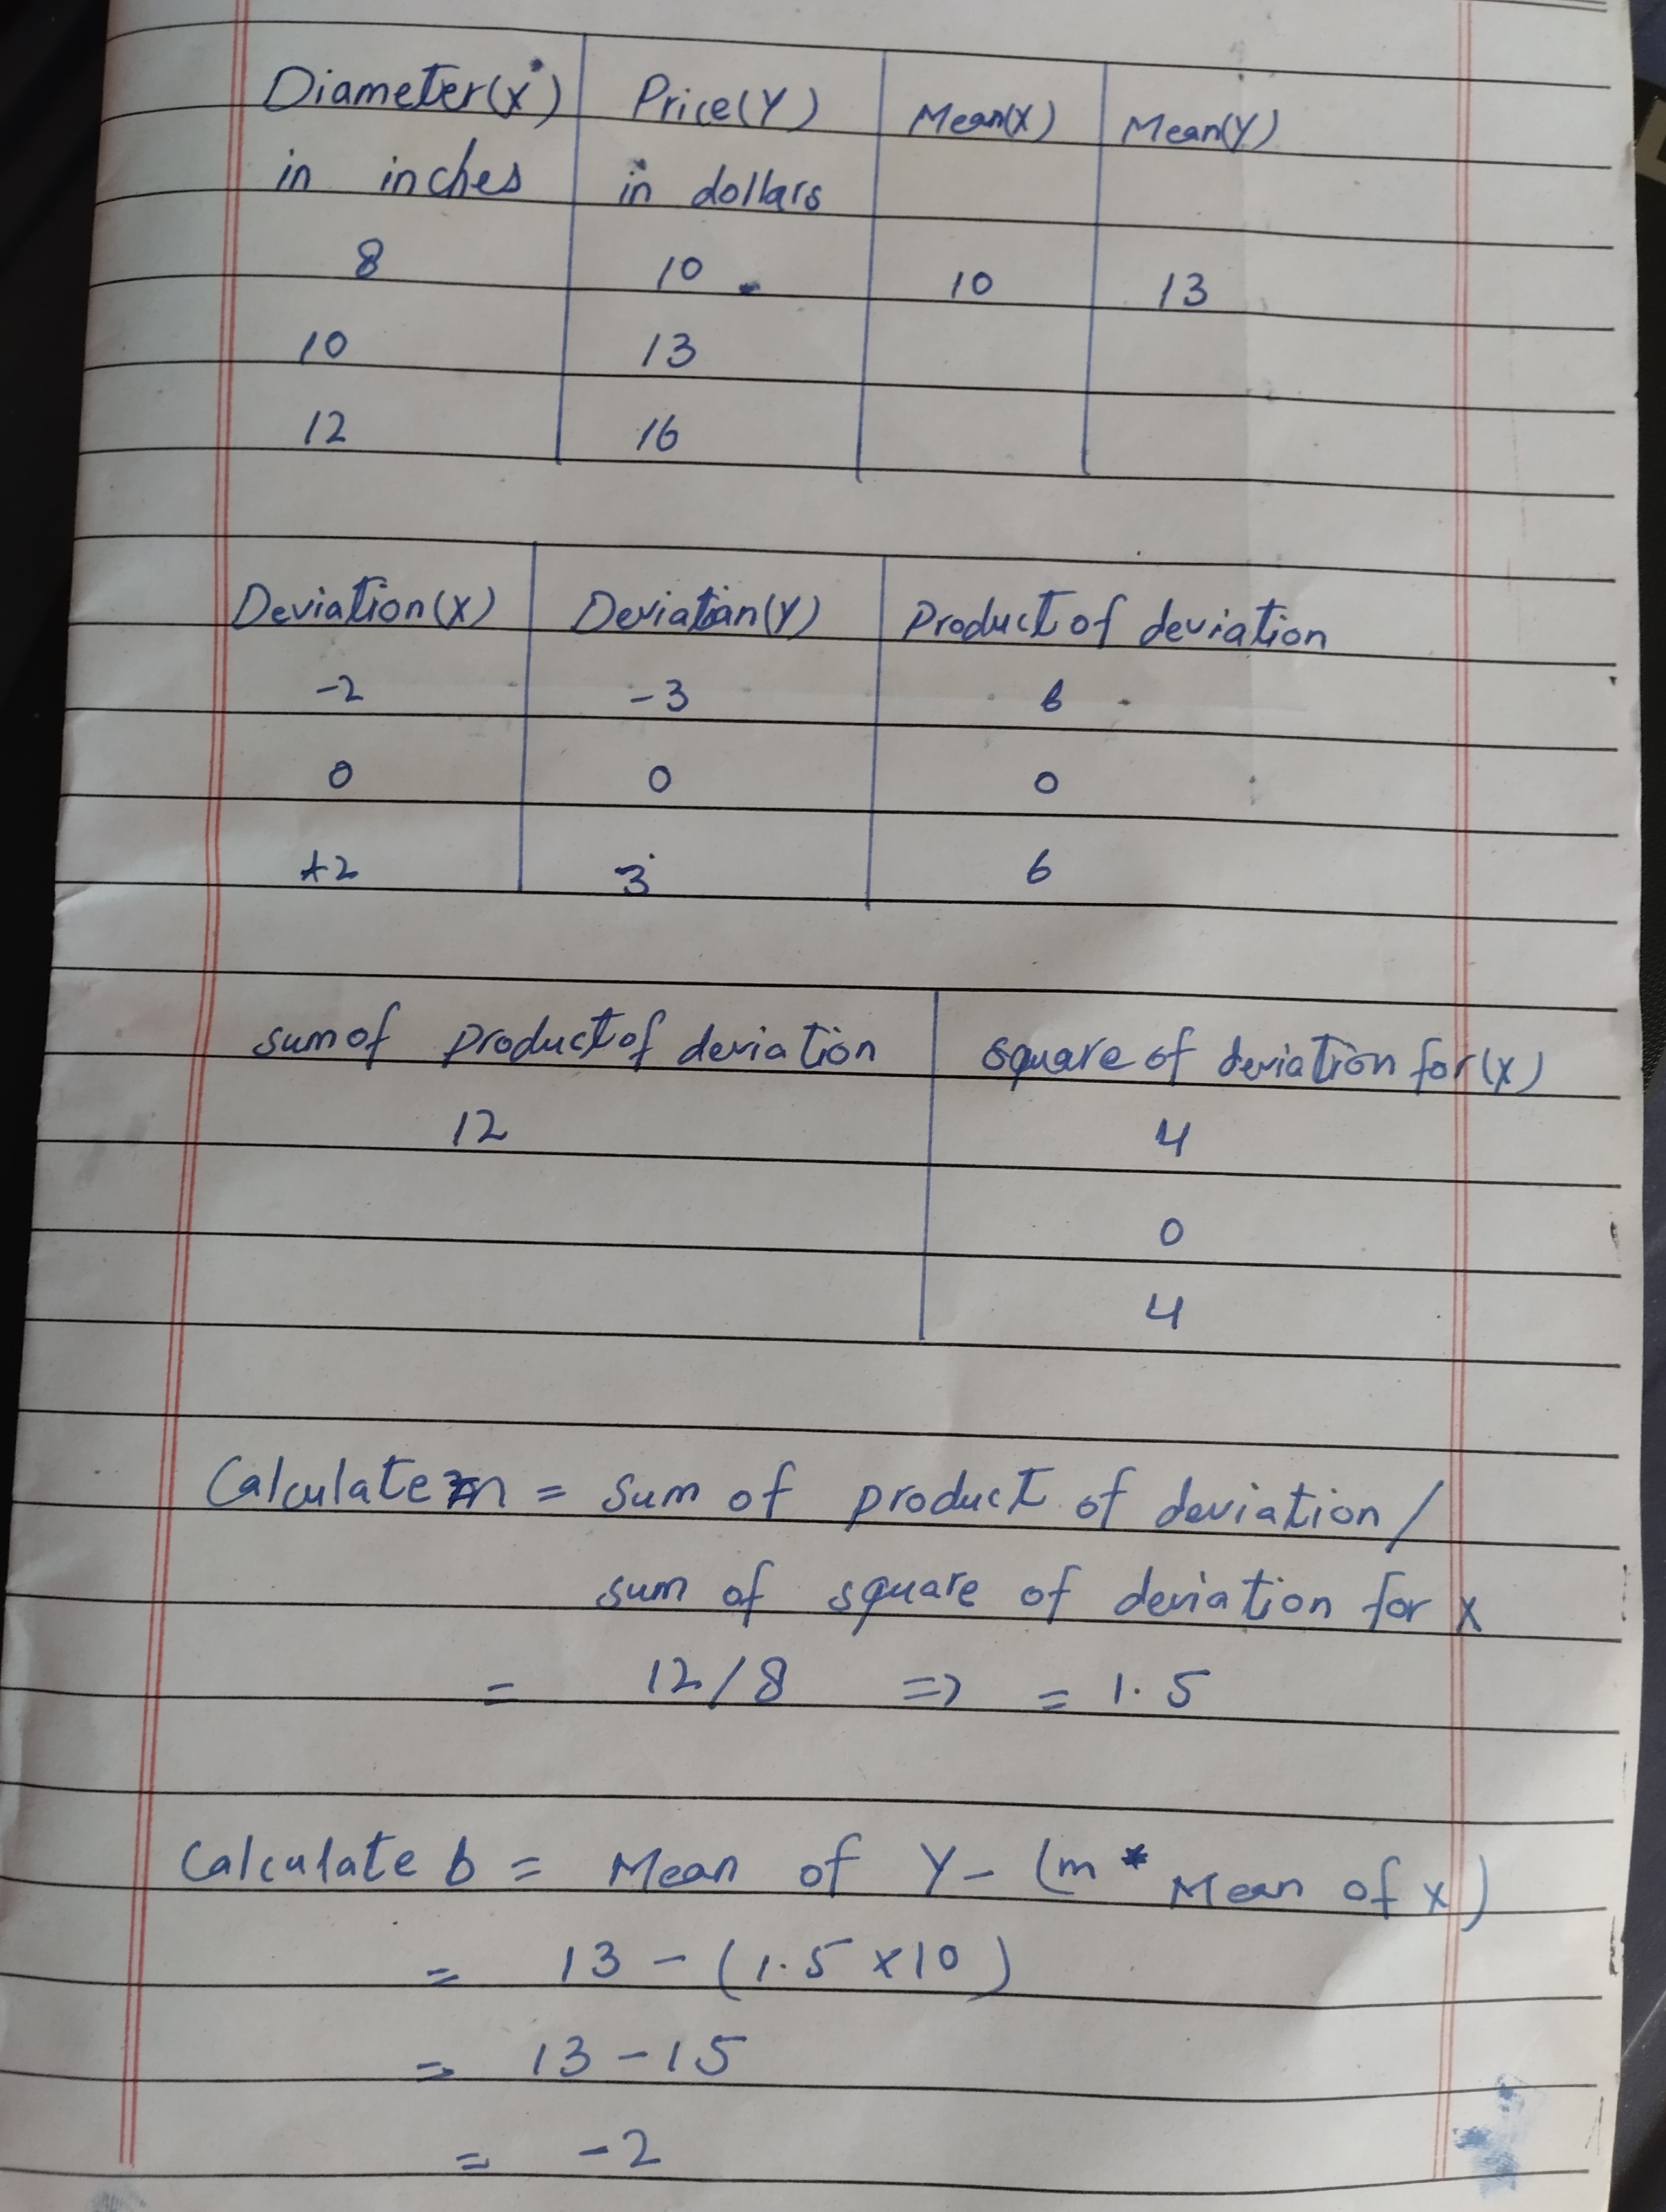 Diameter(X) Price(Y) Mean(X) Mean(Y)
in inches in dollars
8 10 10 13
10 13
12 16
Deviation(X) Deviation(Y) Product of deviation
-2 -3 6
0 0 0
+2 3 6
sum of product of deviation square of deviation for(x)
12 4
0
4
Calculate m = sum of product of deviation /
sum of square of deviation for x
= 12/8 => = 1.5
Calculate b = Mean of Y - (m * Mean of x)
= 13 - (1.5 x 10)
= 13 - 15
= -2